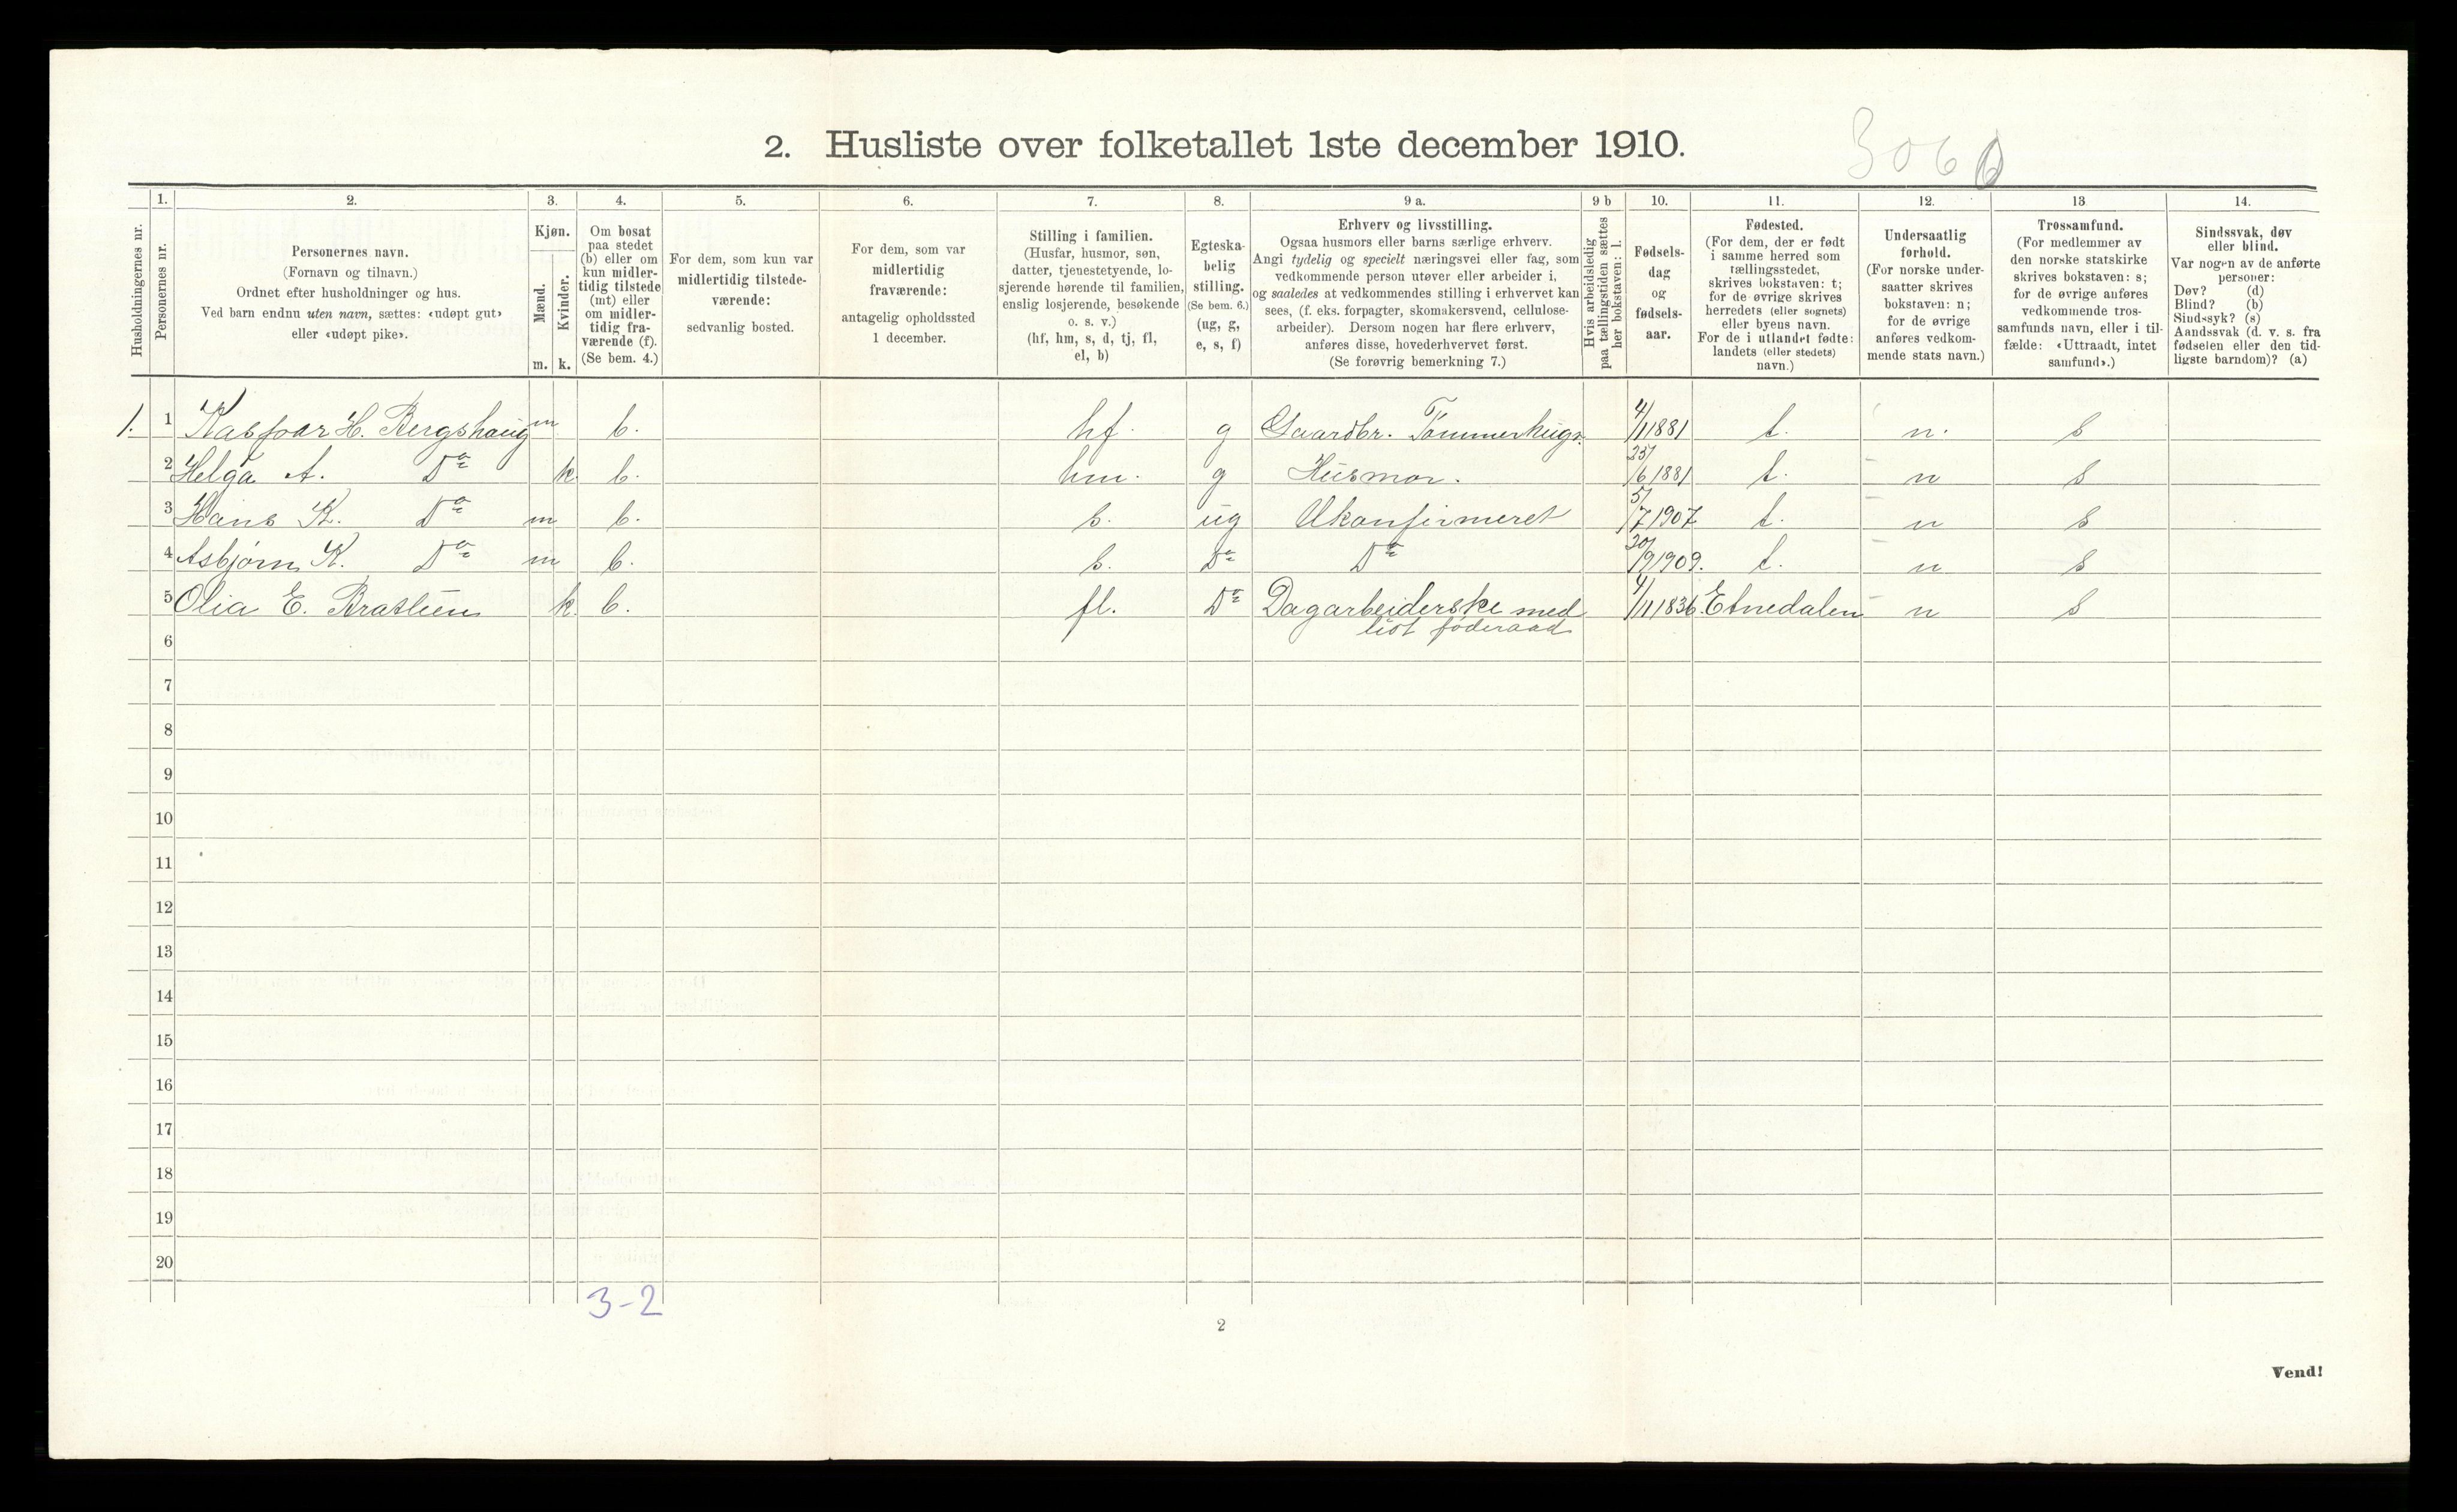 2. Husliste over folketallet 1ste december 1910.
306
Husholdningernes nr.
1.
Personernes nr.
2.
Personernes navn.
(Fornavn og tilnavn.)
Ordnet efter husholdninger og hus.
Ved barn endnu uten navn, sættes: «udøpt gut»
eller «udøpt pike».
3.
Kjøn.
Mænd.
Kvinder.
m. k.
4.
Om bosat
paa stedet
(b) eller om
kun midler-
tidig tilstede
(mt) eller
om midler-
tidig fra-
værende (f).
(Se bem. 4.)
5.
For dem, som kun var
midlertidig tilstede-
værende:
sedvanlig bosted.
6.
For dem, som var
midlertidig
fraværende:
antagelig opholdssted
1 december.
7.
Stilling i familien.
(Husfar, husmor, søn,
datter, tjenestetyende, lo-
sjerende hørende til familien,
enslig losjerende, besøkende
o. s. v.)
(hf, hm, s, d, tj, fl,
el, b)
8.
Egteska-
belig
stilling.
(Se bem. 6.)
(ug, g,
e, s, f)
9 a.
Erhverv og livsstilling.
Ogsaa husmors eller barns særlige erhverv.
Angi tydelig og specielt næringsvei eller fag, som
vedkommende person utøver eller arbeider i,
og saaledes at vedkommendes stilling i erhvervet kan
sees, (f. eks. forpagter, skomakersvend, cellulose-
arbeider). Dersom nogen har flere erhverv,
anføres disse, hovederhvervet først.
(Se forøvrig bemerkning 7.)
9 b
Hvis arbeidsledig
paa tællingstiden sættes
her bokstaven: l.
10.
Fødsels-
dag
og
fødsels-
aar.
11.
Fødested.
(For dem, der er født
i samme herred som
tællingsstedet,
skrives bokstaven: t;
for de øvrige skrives
herredets (eller sognets)
eller byens navn.
For de i utlandet fødte:
landets (eller stedets)
navn.)
12.
Undersaatlig
forhold.
(For norske under-
saatter skrives
bokstaven: n;
for de øvrige
anføres vedkom-
mende stats navn.)
13
Trossamfund.
(For medlemmer av
den norske statskirke
skrives bokstaven: s;
for de øvrige anføres
vedkommende tros-
samfunds navn, eller i til-
fælde: «Uttraadt, intet
samfund».)
14.
Sindssvak, døv
eller blind.
Var nogen av de anførte
personer:
Døv? (d)
Blind? (b)
Sindssyk? (s)
Aandssvak (d. v. s. fra
fødselen eller den tid-
ligste barndom)? (a)
1. 1 Kaspar H. Bergshaug m b. hf. g Gaardbr. Tømmerhugr. 4/1 1881 t. n. s
2 Helga A. Do k b. hm. g Husmor. 25/6 1881 t. n s
3 Hans K. Do m b. s. ug Ukonfirmeret 5/7 1907 t. n s
4 Asbjørn K. Do m b. s. Do Do 20/9 1909. t. n s
5 Olia E. Bratlien k b. fl. Do Dagarbeiderske med 4/11 1836 Etnedalen n s
lidt føderaad
6
7
8
9
10
11
12
13
14
15
16
17
18
19
20
3-2
2
Vend!